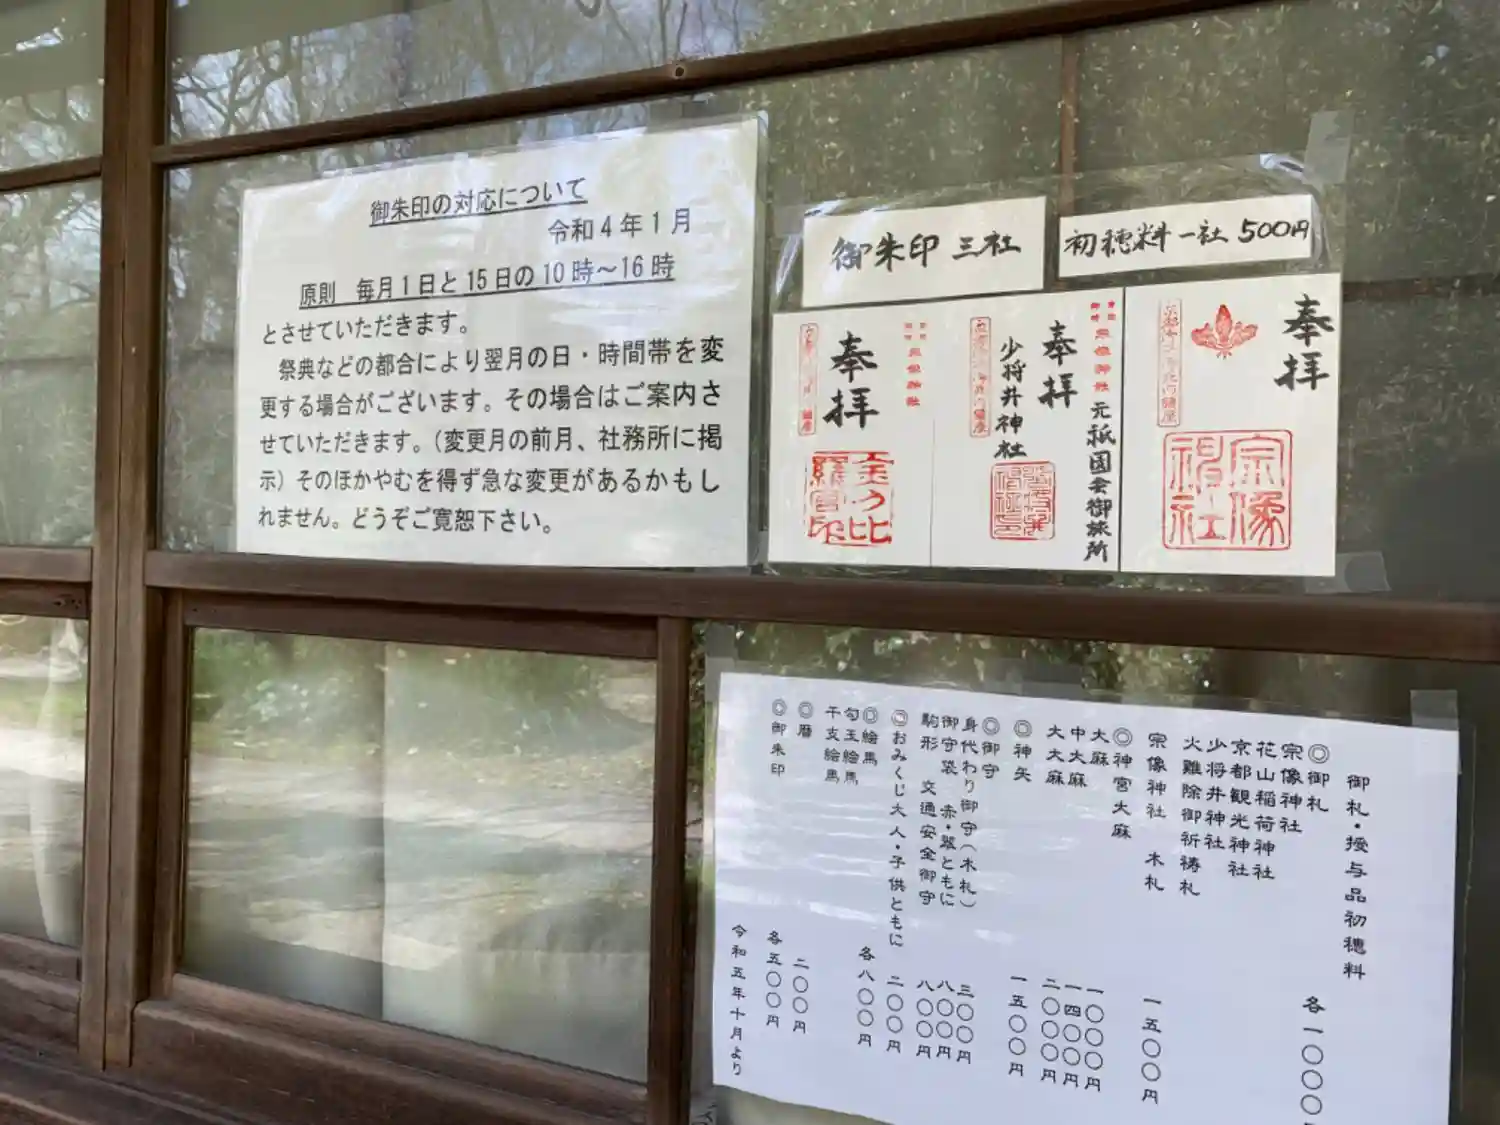 御朱印の対応について
令和4年1月
原則　毎月1日と15日の10時～16時
とさせていただきます。
祭典などの都合により翌月の日・時間帯を変
更する場合がございます。その場合はご案内さ
せていただきます。（変更月の前月、社務所に掲
示）そのほかやむを得ず急な変更があるかもし
れません。どうぞご寛恕下さい。
御朱印 三社
初穂料一社 500円
奉拝
宗像神社
奉拝
少将井神社
元祇園会御旅所
奉拝
金刀比羅宮印
御札・授与品初穂料
◎御札
宗像神社
花山稲荷神社
京都観光神社
少将井神社
火難除御祈祷札
各一〇〇〇
宗像神社　木札　一五〇〇円
◎神宮大麻
大麻　一〇〇〇円
中大麻　一四〇〇円
大大麻　二〇〇〇円
◎神矢　一五〇〇円
◎御守
身代わり御守（木札）　三〇〇円
御守袋　赤・翠ともに　八〇〇円
駒形　交通安全御守　八〇〇円
◎おみくじ大人・子供ともに　二〇〇円
◎絵馬
勾玉絵馬
干支絵馬
各八〇〇円
◎暦　二〇〇円
◎御朱印　各五〇〇円
令和五年十月より